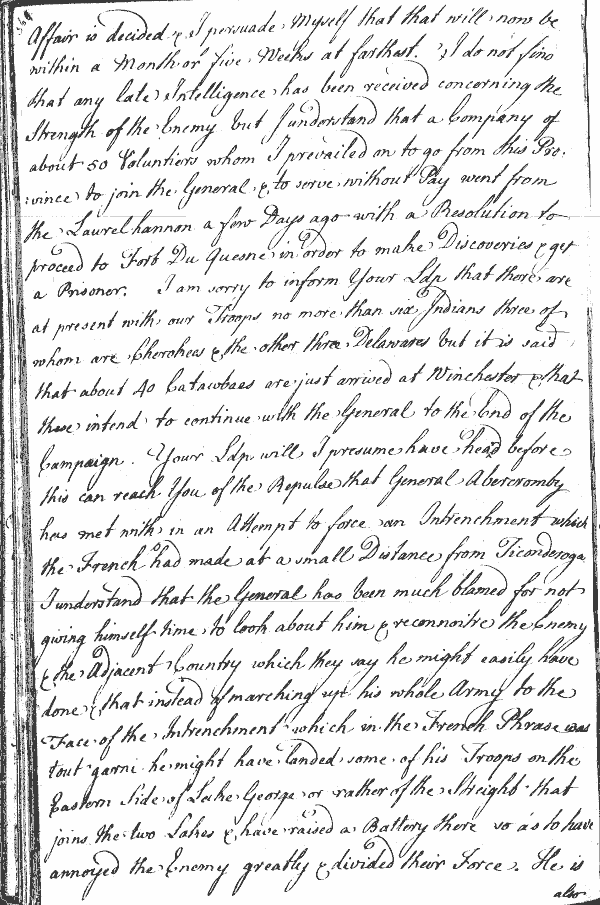 Affair is decided & I persuade Myself that that will now be
within a Month or five Weeks at farthest. I do not find
that any late Intelligence has been received concerning the
Strength of the Enemy but I understand that a Company of
about 50 Voluntiers whom I prevailed on to go from this Pro-
vince to join the General & to serve without Pay went from
the Laurelhannon a few Days ago with a Resolution to
proceed to Fort Du Quesne in order to make Discoveries & get
a Prisoner. I am sorry to inform Your Ldp that there are
at present with our Troops no more than six Indians three of
whom are Cherokees & the other three Delawares but it is said
that about 40 Catawbaes are just arrived at Winchester & that
these intend to continue with the General to the End of the
Campaign. Your Ldp will I presume have head before
this can reach You of the Repulse that General Abercromby
has met with in an Attempt to force an Intrenchment which
the French had made at a small Distance from Ticonderoga
I understand that the General has been much blamed for not
giving himself time to look about him & reconnoitre the Enemy
& the Adjacent Country which they say he might easily have
done & that instead of marching up his whole Army to the
Face of the Intrenchment which in the French Phrase was
tout garni he might have landed some of his Troops on the
Eastern Side of Lake George or rather of the Streight that
joins the two Lakes & have raised a Battery there so as to have
annoyed the Enemy greatly & divided their Force. He is
also